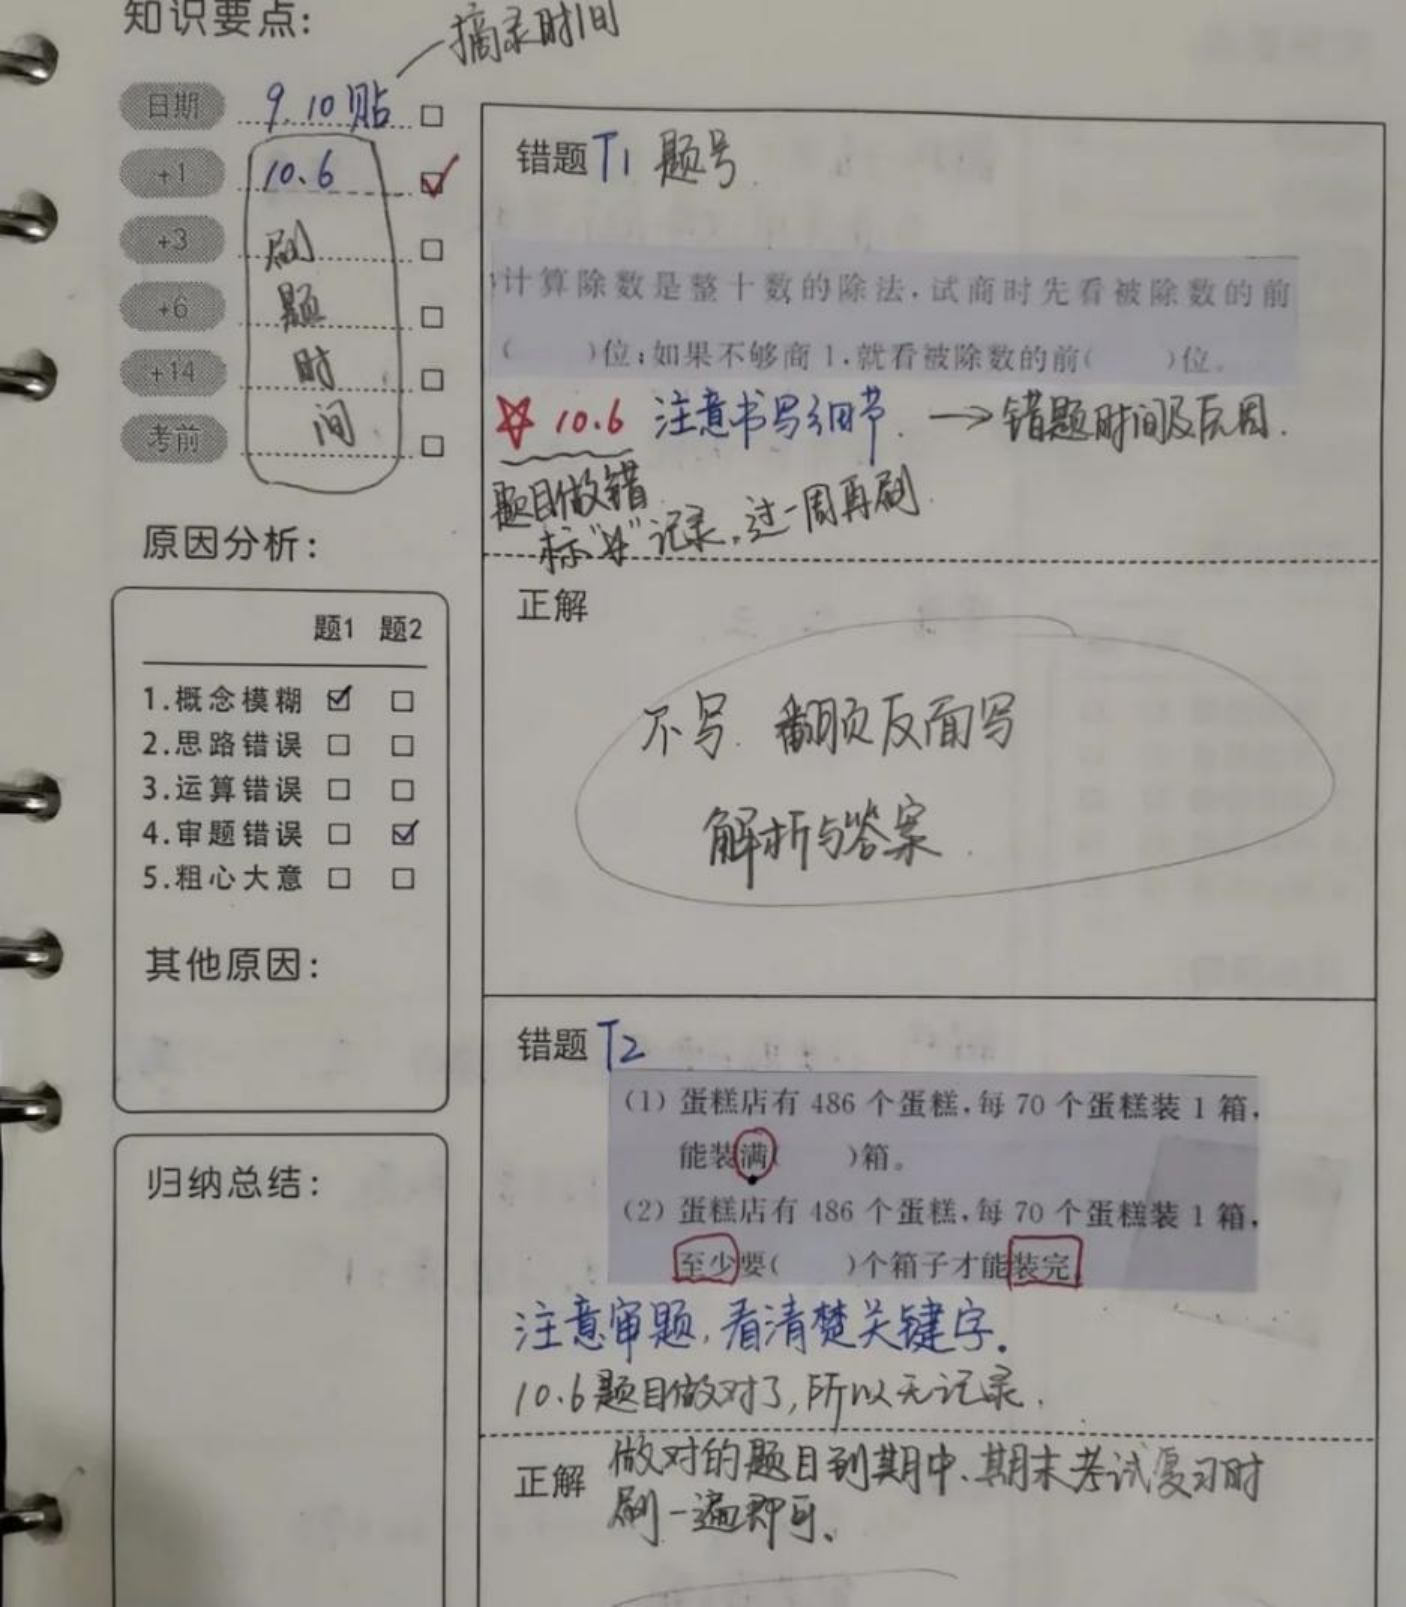 知识要点:
摘录时间
日期 9.10贴
+1 10.6
+3 刷
+6 题
+14 时
考前 间
原因分析:
题1 题2
1.概念模糊
2.思路错误
3.运算错误
4.审题错误
5.粗心大意
其他原因:
归纳总结:
错题 T1 题号
计算除数是整十数的除法,试商时先看被除数的前
( )位;如果不够商1,就看被除数的前( )位。
☆ 10.6 注意书写细节. → 错题时间及原因.
题目做错
标"☆"记录,过一周再刷.
正解
不写. 翻页反面写
解析与答案.
错题 T2
(1) 蛋糕店有 486 个蛋糕,每 70 个蛋糕装 1 箱,
能装满( )箱。
(2) 蛋糕店有 486 个蛋糕,每 70 个蛋糕装 1 箱,
至少要( )个箱子才能装完
注意审题,看清楚关键字.
10.6题目做对了,所以无记录.
正解 做对的题目到期中、期末考试复习时
刷一遍即可、